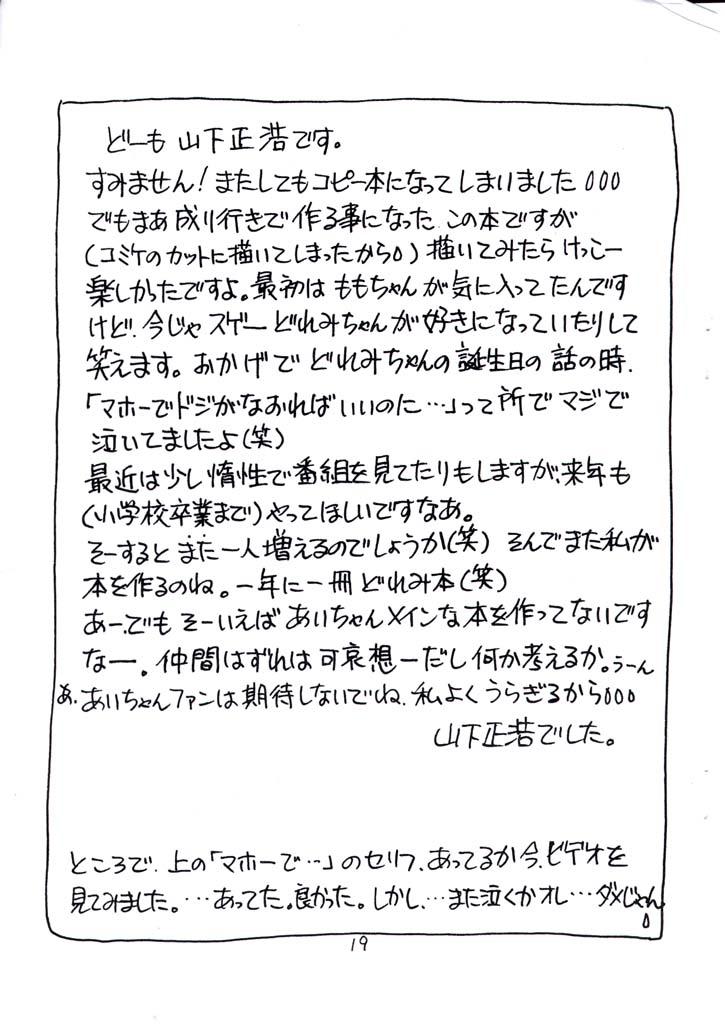 どーも 山下正浩です。
すみません！またしてもコピー本になってしまいました000
でもまあ成り行きで作る事になった この本ですが
(コミケのカットに描いてしまったから0)描いてみたらけっこー
楽しかったですよ。最初は ももちゃんが気に入ってたんです
けど、今じゃスゲーどれみちゃんが好きになっていたりして
笑えます。おかげで どれみちゃんの誕生日の 話の時、
「マホーでドジがなおればいいのに…」って所で マジで
泣いてましたよ(笑)
最近は少し惰性で番組を見てたりもしますが、来年も
(小学校卒業まで)やってほしいですなあ。
そーするとまた一人増えるのでしょうか(笑) そんでまた私が
本を作るのね。一年に一冊どれみ本(笑)
あー、でも そーいえば あいちゃんメインな本を作ってないです
なー。仲間はずれは可哀想ーだし何か考えるか。うーん
あ、あいちゃんファンは期待しないでね、私よくうらぎるから000
山下正浩でした。
ところで、上の「マホーで…」のセリフ、あってるか今、ビデオを
見てみました。…あってた。良かった。しかし、…また泣くかオレ…ダメじゃん0
19